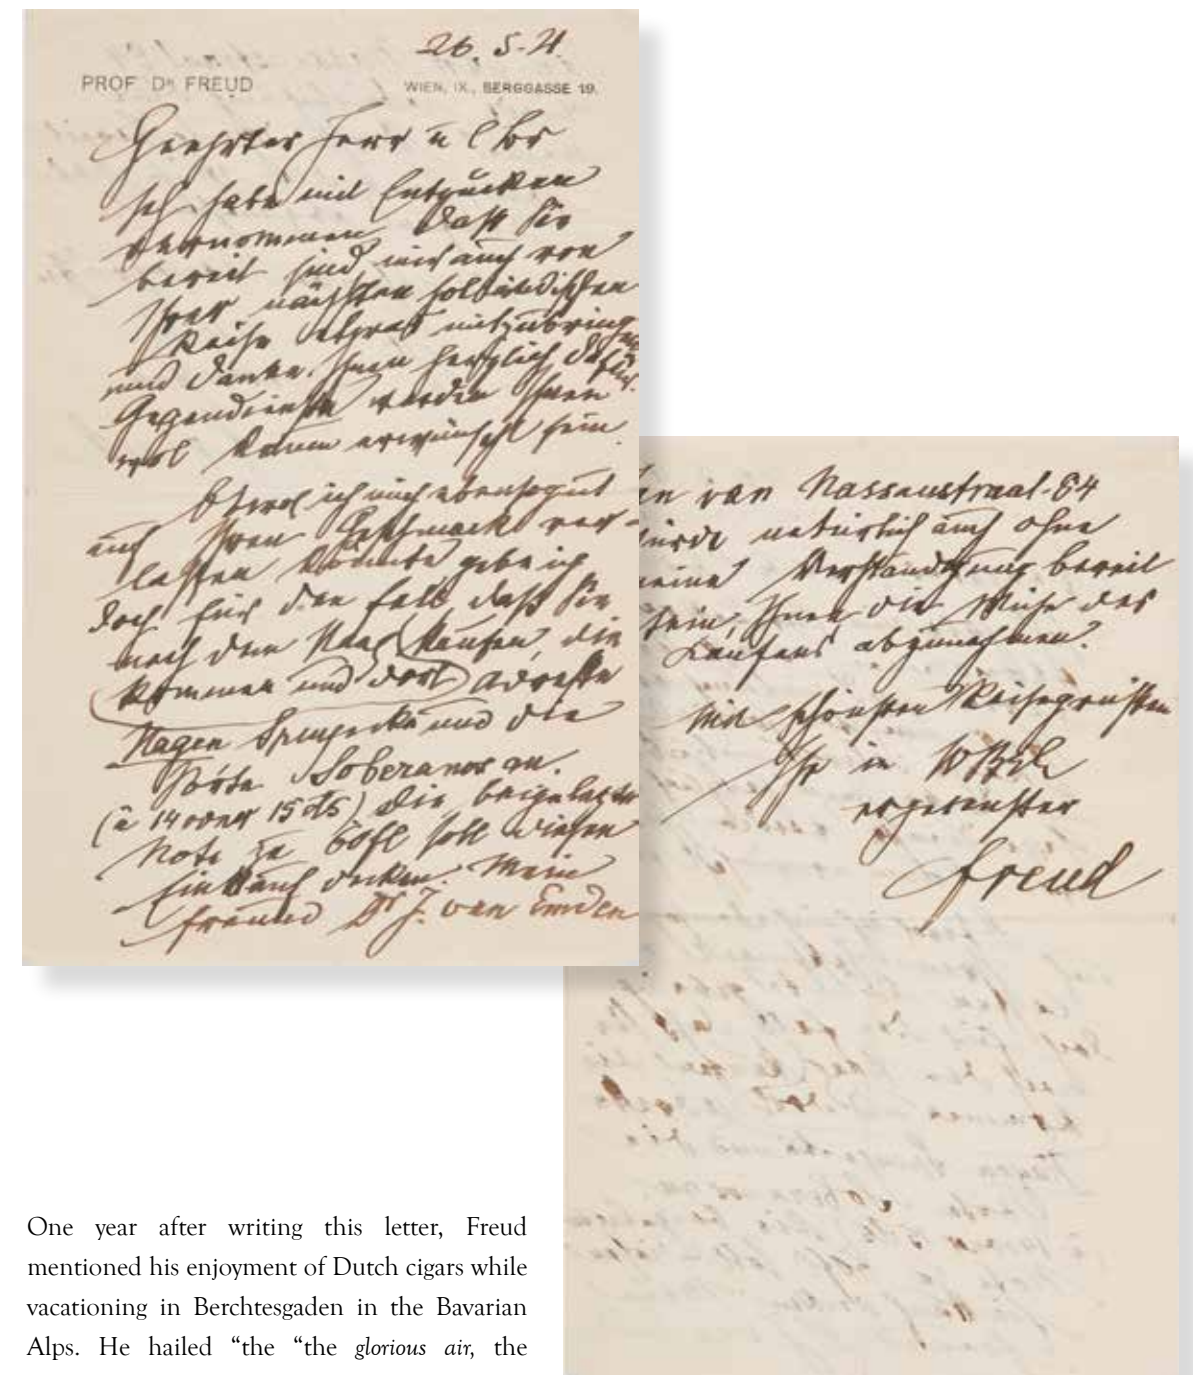 26. 5. 21.
PROF. Dr. FREUD
WIEN, IX., BERGGASSE 19.
Geehrter Herr u
Ich habe mit Entzücken
vernommen daß Sie
bereit sind mir auch von
Ihrer nächsten holländischen
Reise etwas mitzubringen
und danke Ihnen herzlich dafür.
Gegendienste werden Ihnen
wol kaum erwünscht sein.
Obwol ich mich ebensogut
auf Ihren Geschmack ver-
lassen könnte gebe ich
doch für den Fall, daß Sie
nach dem Haag kaufen, die
kommen und dort Adresse
Hagen und die
Sorte Soberanos an.
(à 14 oder 15 cts) Die beigelegte
Note zu 60 fl soll diesen
Einkauf decken. Mein
Freund Dr J. van Emden
en van Nassaustraat 84
würde natürlich auch ohne
meine Verständigung bereit
sein, Ihnen die Mühe des
Kaufens abzunehmen.
Mit schönsten Reisegrüßen
Ihr in
ergebenster
Freud
One year after writing this letter, Freud
mentioned his enjoyment of Dutch cigars while
vacationing in Berchtesgaden in the Bavarian
Alps. He hailed “the “the glorious air, the